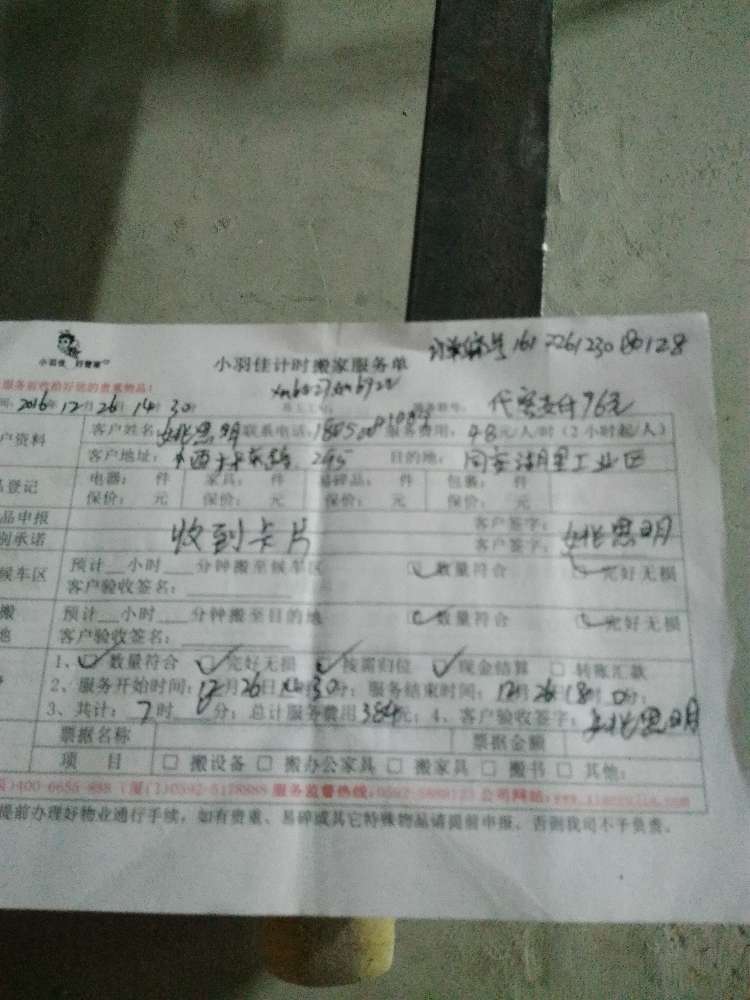 小羽佳 好管家
小羽佳计时搬家服务单 订单编号
服务前收拾好您的贵重物品！
间：2016年12月26日14时30 代客支付96元
户资料 客户姓名： 思明 联系电话： 服务费用：48元/人/时（2小时起/人）
客户地址： 295 目的地：同安湖里工业区
登记 电器： 件 家具： 件 易碎品： 件 包裹： 件
保价： 元 保价： 元 保价： 元 保价： 元
品申报 客户签字：
别承诺 收到卡片 客户签字： 思明
候车区 预计__小时___分钟搬至候车区 数量符合 完好无损
客户验收签名：
搬 预计__小时___分钟搬至目的地 数量符合 完好无损
地 客户验收签名：
1、数量符合 完好无损 按需归位 现金结算 转账汇款
2、服务开始时间：12月26日 30分；服务结束时间：12月26日18时0分；
3、共计： 时 分；总计服务费用384元；4、客户验收签字： 思明
票据名称 票据金额
项 目 搬设备 搬办公家具 搬家具 搬书 其他：
400 6655 888（厦门）0592-5128888 服务监督热线： 公司网站：
提前办理好物业通行手续，如有贵重、易碎或其它特殊物品请提前申报，否则我司不予负责。